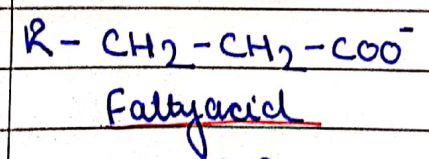 R - CH2 - CH2 - COO⁻
Fattyacid